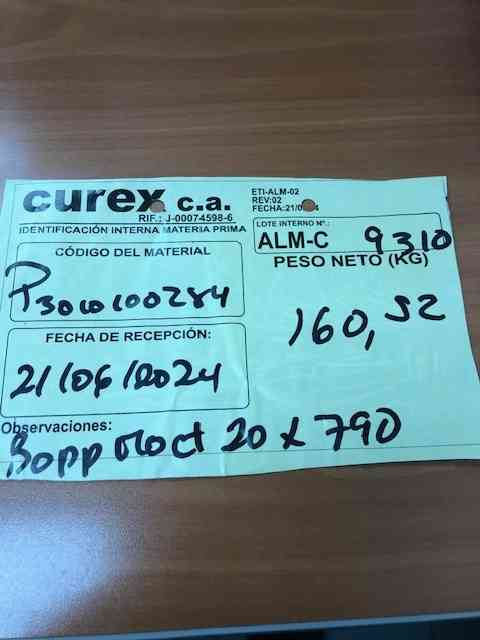 curex c.a.
RIF.: J-00074598-6
IDENTIFICACIÓN INTERNA MATERIA PRIMA
ETI-ALM-02
REV:02
FECHA:21/0 4
LOTE INTERNO Nº.:
ALM-C 9310
CÓDIGO DEL MATERIAL
P3010100284
PESO NETO (KG)
160,52
FECHA DE RECEPCIÓN:
21/06/2024
Observaciones:
Bopp 20 x 790